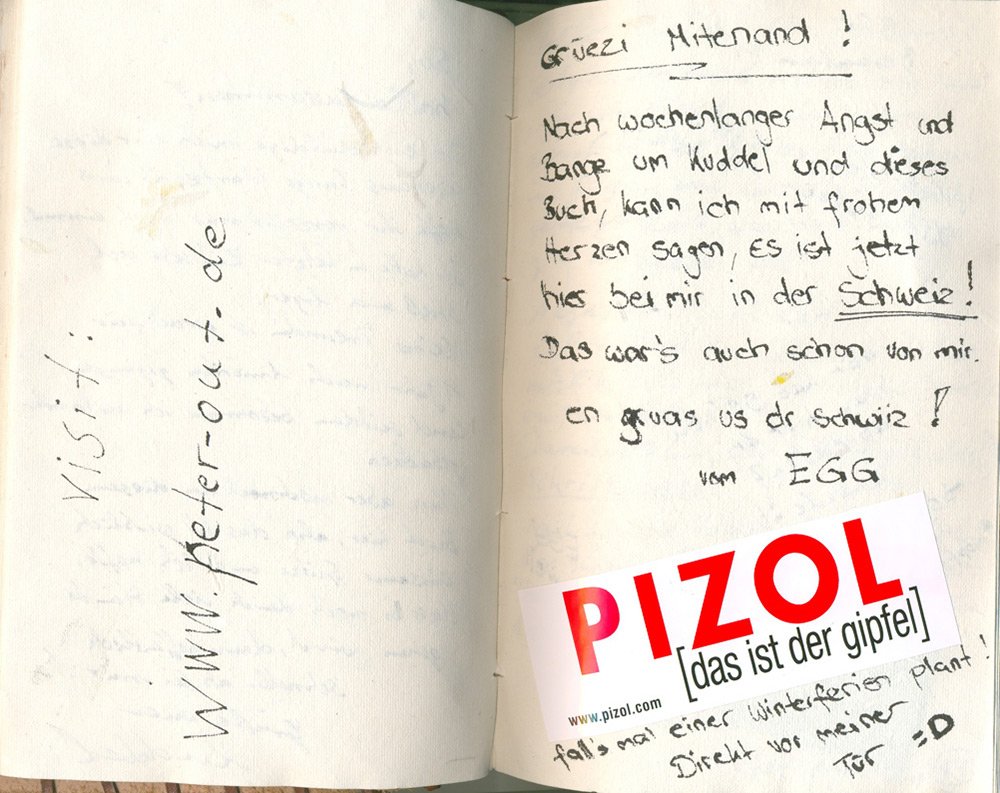 visit:
www.peter-out.de
Grüezi Mitenand!
Nach wochenlanger Angst und
Bange um Kuddel und dieses
Buch, kann ich mit frohem
Herzen sagen, Es ist jetzt
hier bei mir in der Schweiz!
Das war's auch schon von mir.
en gruas us dr schwiiz!
vom EGG
PIZOL
[das ist der gipfel]
www.pizol.com
fall's mal einer Winterferien plant!
Direkt vor meiner
Tür =D